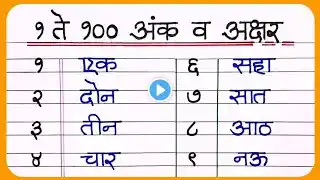 १ ते १०० अंक व अक्षर
१ एक ६ सहा
२ दोन ७ सात
३ तीन ८ आठ
४ चार ९ नऊ